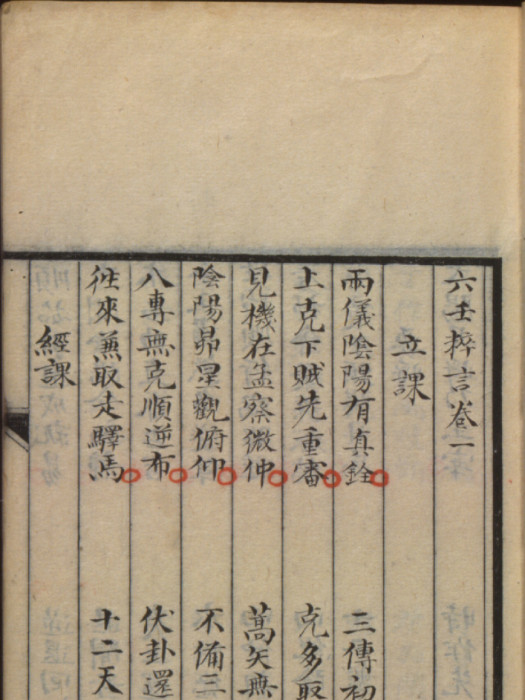 六壬粹言卷一
立課
兩儀陰陽有真銓 三傳初
上克下賊先重審 克多取
見機在孟察微仲 蒿矢無
陰陽昴星觀俯仰 不俻三
八專無克順逆布 伏卦還
徃來兼取走驛馬 十二天
經課